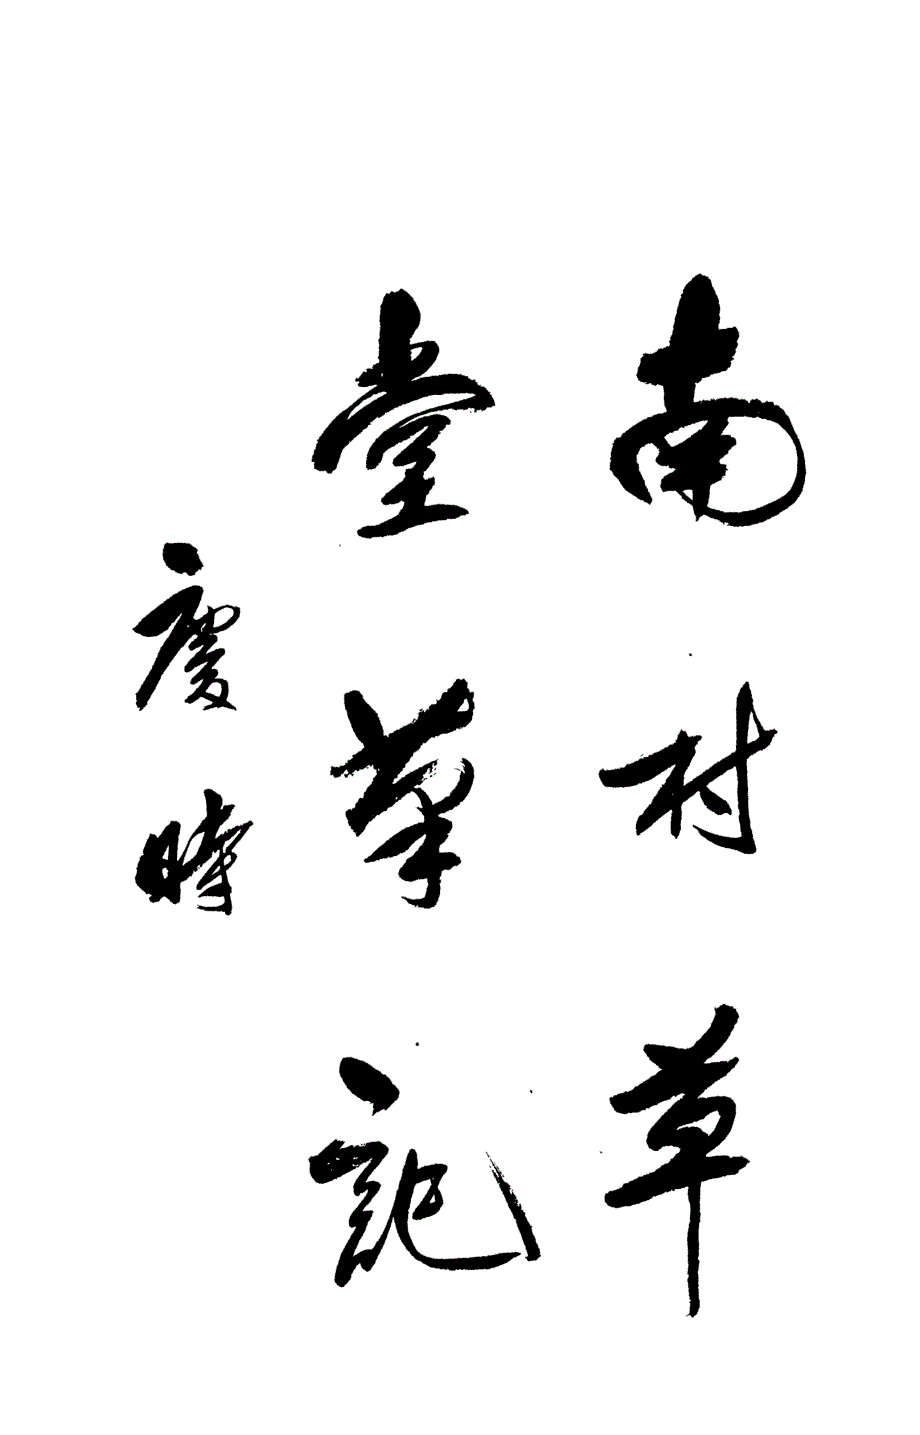 南村草
堂筆記
慶時